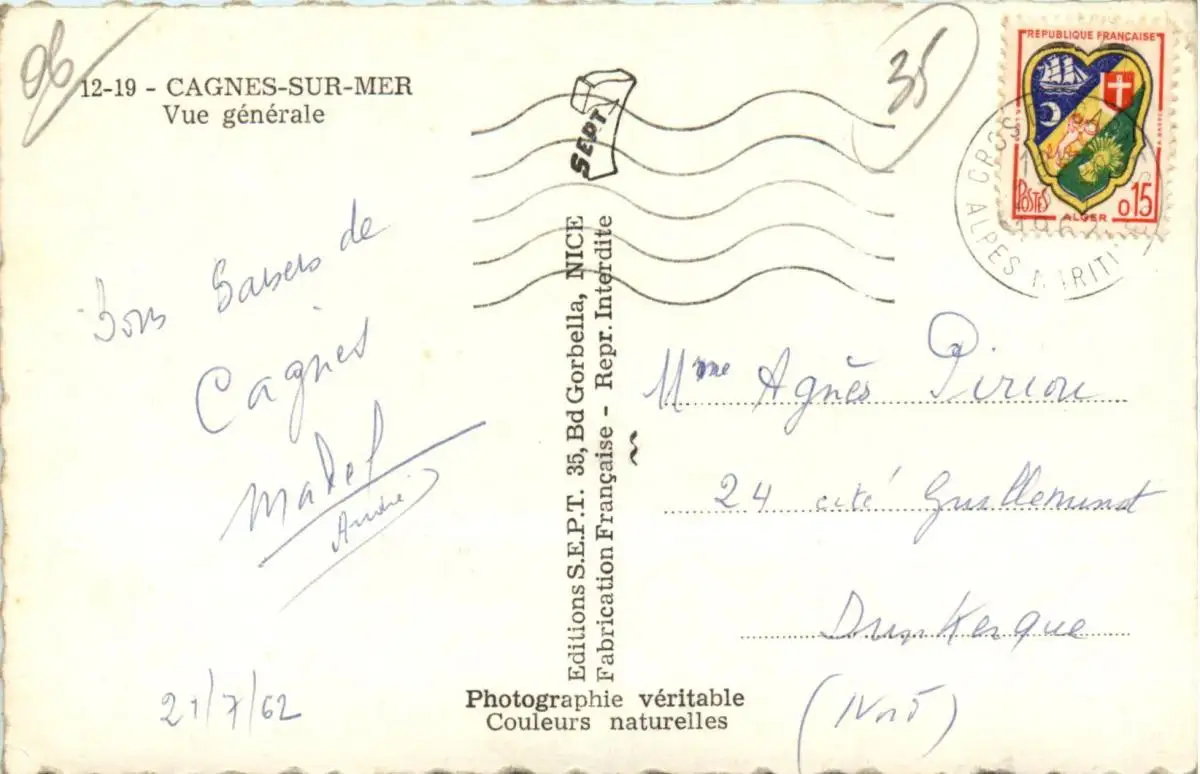 06
12-19 - CAGNES-SUR-MER
Vue générale
Bons Baisers de
Cagnes
André
21/7/62
SEPT
Editions S.E.P.T. 35, Bd Gorbella, NICE
Fabrication Française - Repr. Interdite
Photographie véritable
Couleurs naturelles
35
REPUBLIQUE FRANÇAISE
POSTES
ALGER
0,15
CROS
ALPES MARITI
Mme Agnès Piriou
24 cité Guilleminot
Dunkerque
(Nord)